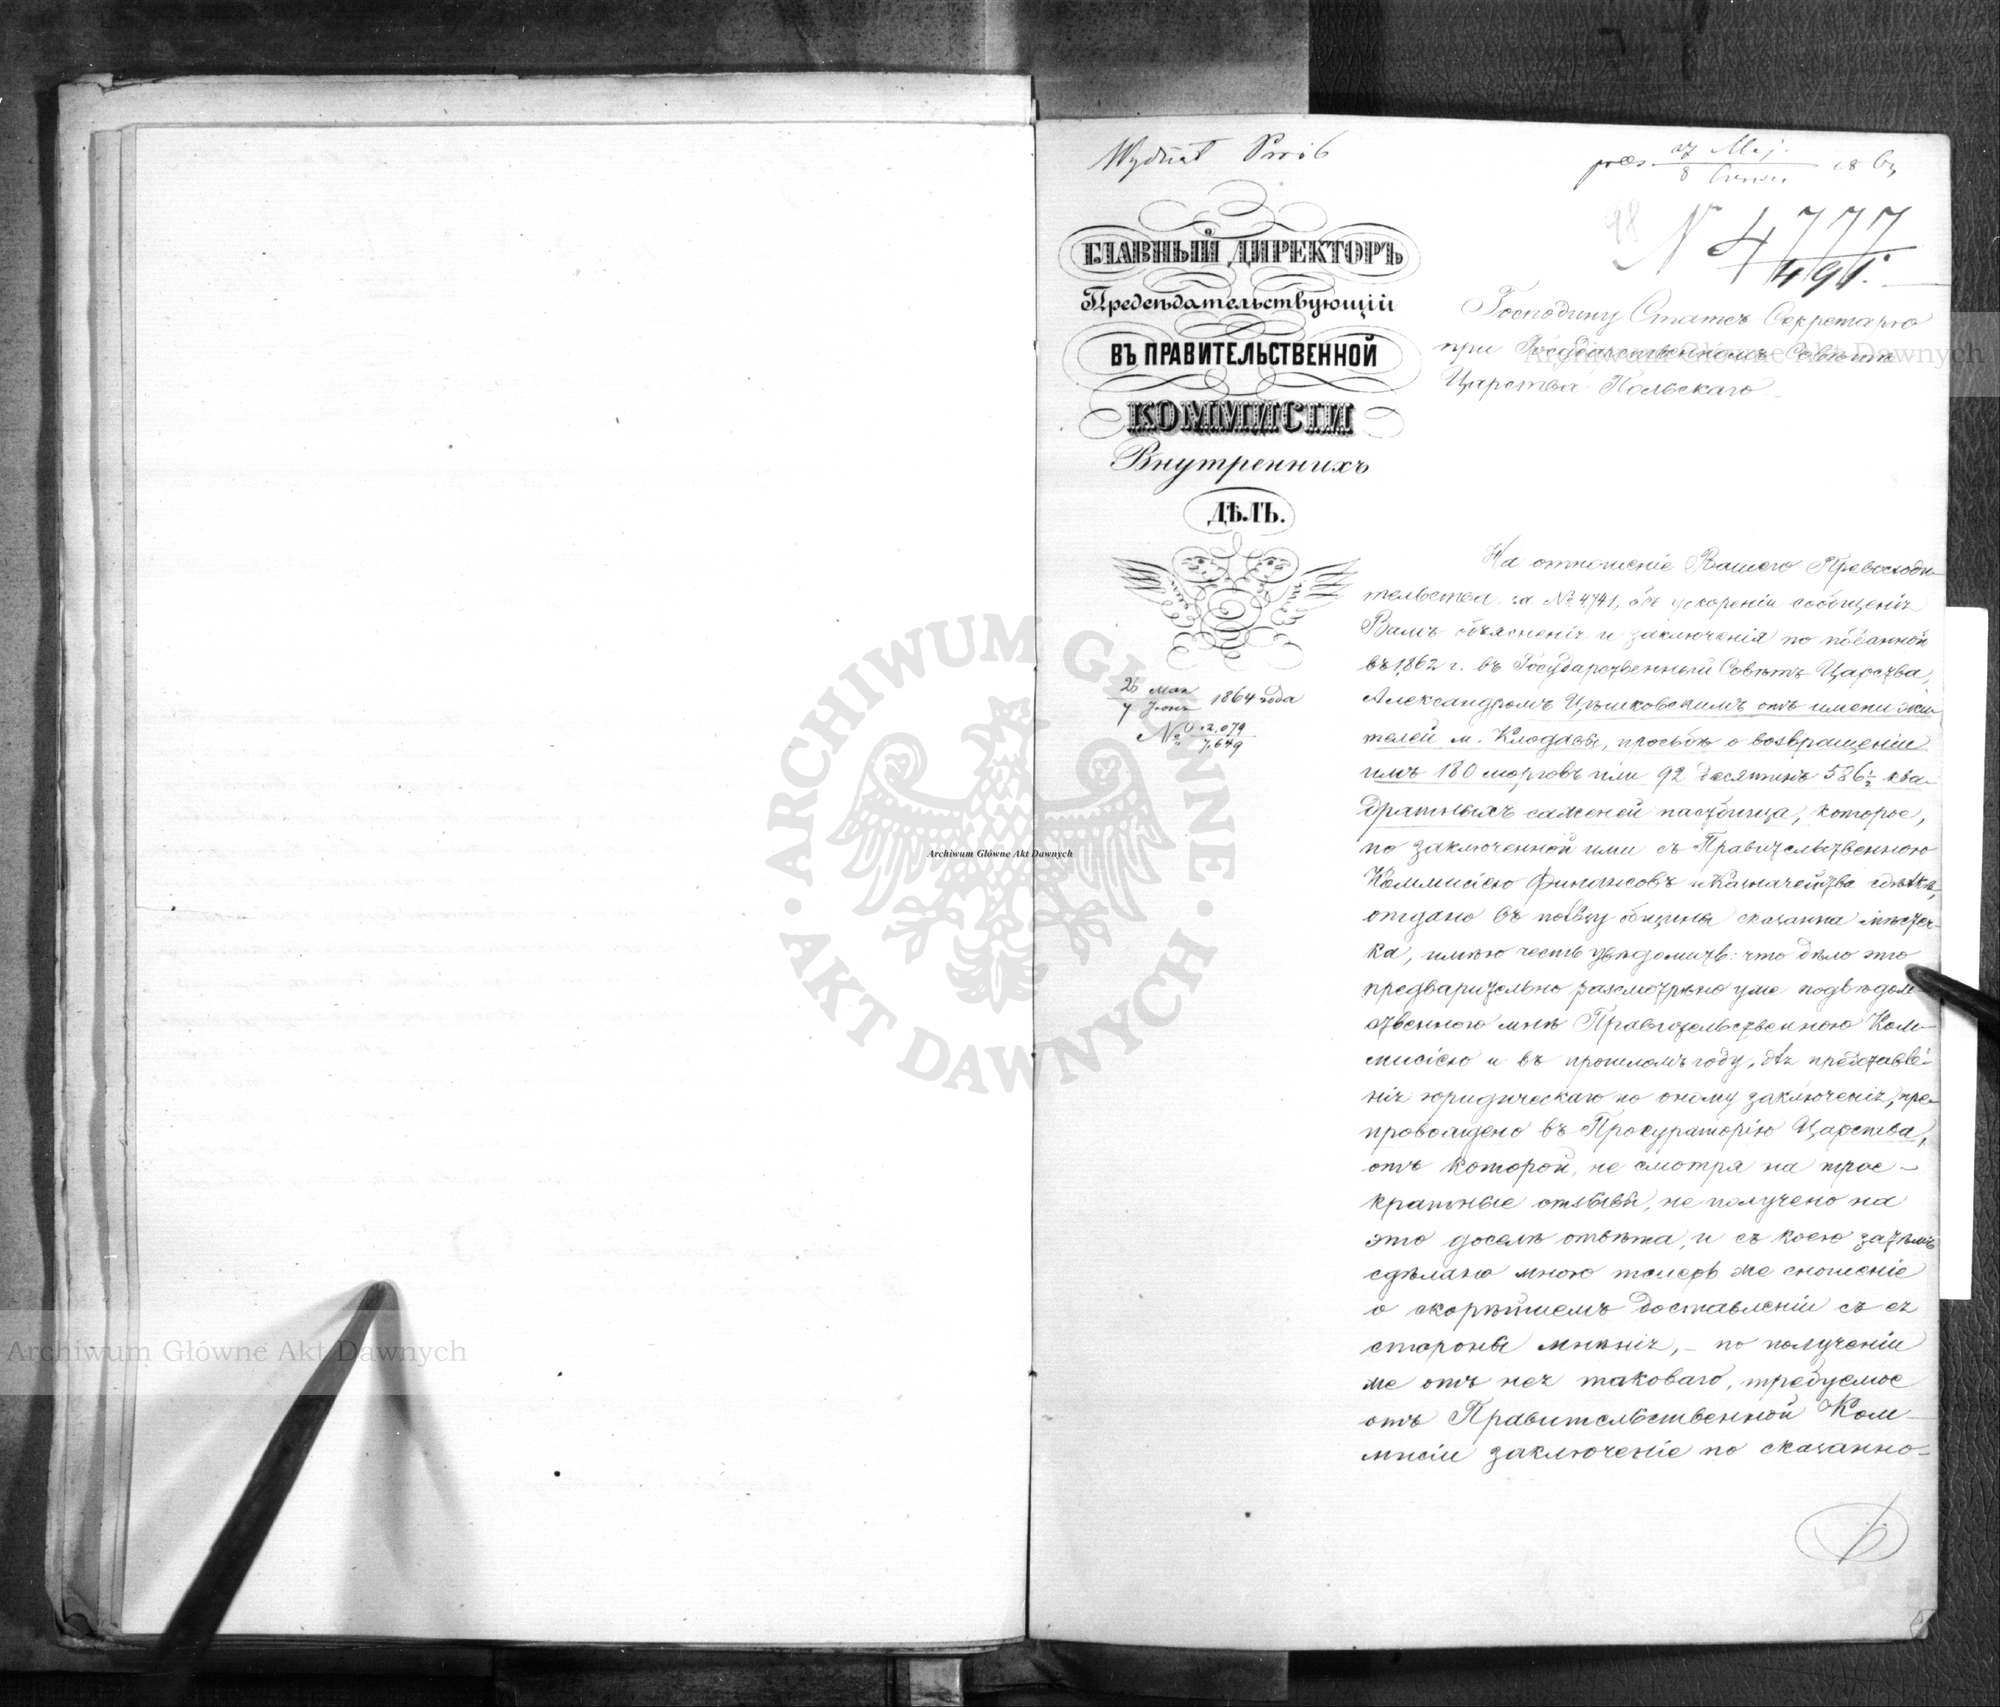 Wydział
præs. 27 Maj. / 8 Czerwca 1864
98
N 4777 / 491.
ГЛАВНЫЙ ДИРЕКТОРЪ
Предсѣдательствующій
ВЪ ПРАВИТЕЛЬСТВЕННОЙ
КОММИСІИ
Внутреннихъ
ДѢЛЪ.
26 Мая / 7 Іюня 1864 года
№ 12.079 / 7.649
Господину Статсъ Секретарю
при Государственномъ Совѣтѣ
Царства Польскаго
На отношеніе Вашего Превосходи-
тельства за № 4741, объ ускореніи сообщенія
Вамъ объясненія и заключенія по поданной
въ 1862 г. въ Государственный Совѣтъ Царства,
Александромъ Цѣшковскимъ отъ имени жи-
телей м. Клодавы, просьбѣ о возвращеніи
имъ 180 морговъ или 92 десятинъ 586½ ква-
дратныхъ саженей пастбища, которое,
по заключенной ими съ Правительственною
Коммисіею Финансовъ и Казначейства сдѣлкѣ,
отдано въ пользу общины сказанна мѣстеч-
ка, имѣю честь увѣдомить: что дѣло это
предварительно разсмотрѣно уже подвѣдом-
ственною мнѣ Правительственною Ком-
мисіею и въ прошломъ году, для представле-
нія юридическаго по оному заключенія, пре-
провождено въ Прокураторію Царства,
отъ которой, не смотря на трое-
кратные отзывы, не получено на
это доселѣ отвѣта, и съ коею затѣмъ
сдѣлано мною теперь же сношеніе
о скорѣйшемъ доставленіи съ ея
стороны мнѣнія, – по полученіи
же отъ нея таковаго, требуемое
отъ Правительственной Ком-
мисіи заключеніе по сказанно-
Archiwum Główne Akt Dawnych
Archiwum Główne Akt Dawnych
Archiwum Główne Akt Dawnych
ARCHIWUM GŁÓWNE · AKT DAWNYCH ·